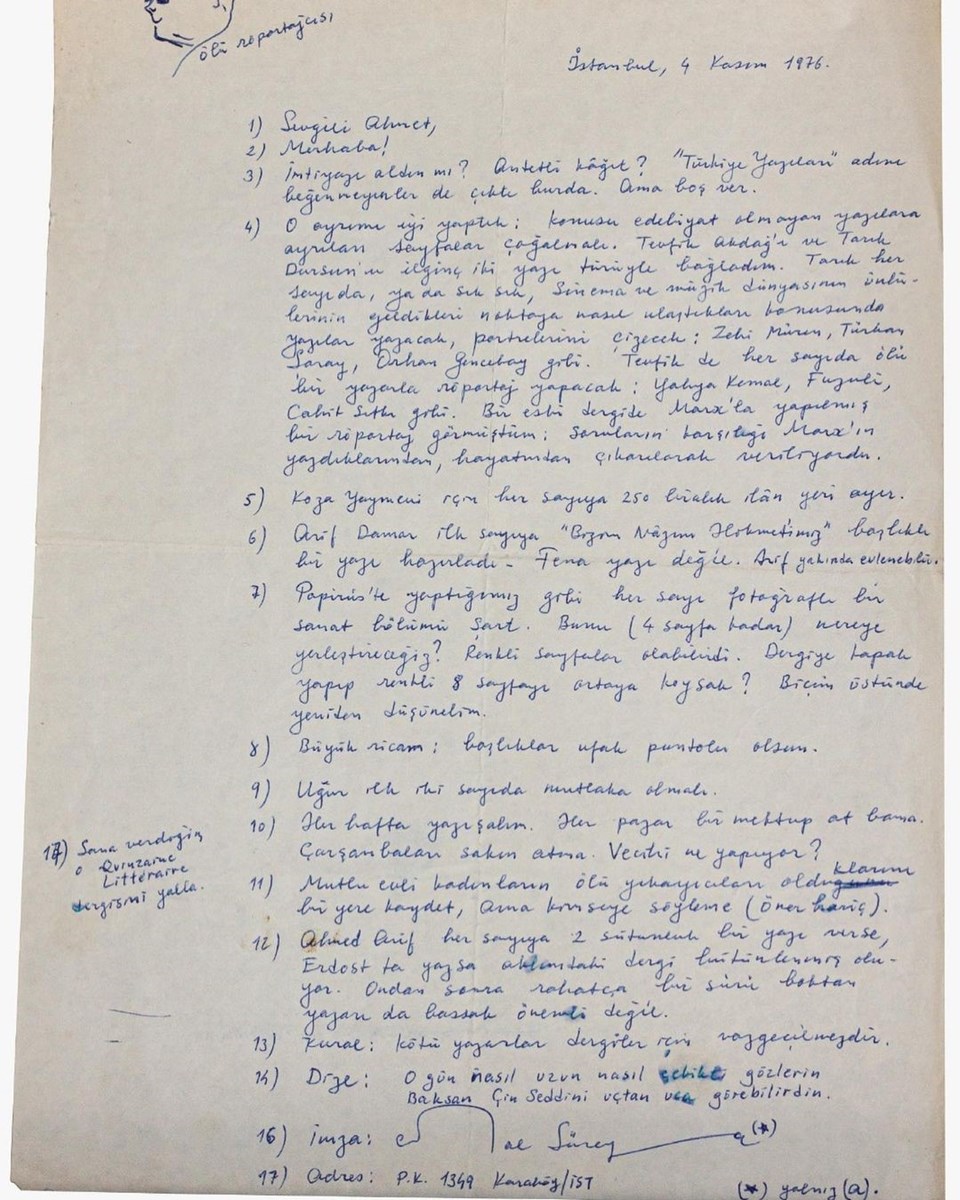 ölü röportajcısı
İstanbul, 4 Kasım 1976.
1) Sevgili Ahmet,
2) Merhaba!
3) İmtiyazı aldın mı? Antetli kâğıt? "Türkiye Yazıları" adını
beğenmeyenler de çıktı burda. Ama boş ver.
4) O ayrımı iyi yaptık: konusu edebiyat olmayan yazılara
ayrılan sayfalar çoğalmalı. Tevfik Akdağ'ı ve Tarık
Dursun'u ilginç iki yazı türüyle bağladım. Tarık her
sayıda, ya da sık sık, sinema ve müzik dünyasının ünlü-
lerinin geldikleri noktaya nasıl ulaştıkları konusunda
yazılar yazacak, portrelerini çizecek: Zeki Müren, Türkan
Şoray, Orhan Gencebay gibi. Tevfik de her sayıda ölü
bir yazarla röportaj yapacak: Yahya Kemal, Fuzuli,
Cahit Sıtkı gibi. Bir eski dergide Marx'la yapılmış
bir röportaj görmüştüm; soruların karşılığı Marx'ın
yazdıklarından, hayatından çıkarılarak veriliyordu.
5) Koza Yayınevi için her sayıya 250 liralık ilân yeri ayır.
6) Arif Damar ilk sayıya "Bizim Nâzım Hikmetimiz" başlıklı
bir yazı hazırladı - Fena yazı değil. Arif yakında evlenebilir.
7) Papirüs'te yaptığımız gibi her sayı fotoğraflı bir
sanat bölümü şart. Bunu (4 sayfa kadar) nereye
yerleştireceğiz? Renkli sayfalar olabilirdi. Dergiye kapak
yapıp renkli 8 sayfayı ortaya koysak? Biçim üstünde
yeniden düşünelim.
8) Büyük ricam: başlıklar ufak puntolu olsun.
9) Uğur ilk iki sayıda mutlaka olmalı.
10) Her hafta yazışalım. Her pazar bir mektup at bana.
Çarşambaları sakın atma. Vecihi ne yapıyor?
11) Mutlu evli kadınların ölü yıkayıcıları olduklarını
bir yere kaydet, ama kimseye söyleme (Öner hariç).
12) Ahmed Arif her sayıya 2 sütunluk bir yazı verse,
Erdost ta yazsa aklımdaki dergi bütünlenmiş olu-
yor. Ondan sonra rahatça bir sürü boktan
yazarı da bassak önemli değil.
13) Kural: kötü yazarlar dergiler için vazgeçilmezdir.
14) Dize: O gün nasıl uzun nasıl çekikti gözlerin
Baksan Çin Seddini uçtan uca görebilirdin.
16) İmza: Cemal Süreya (*)
17) Adres: P.K. 1349 Karaköy/İST
(*) yalnız (a).
17) Sana verdiğim
o Quinzaine
Littéraire
dergisini yolla.